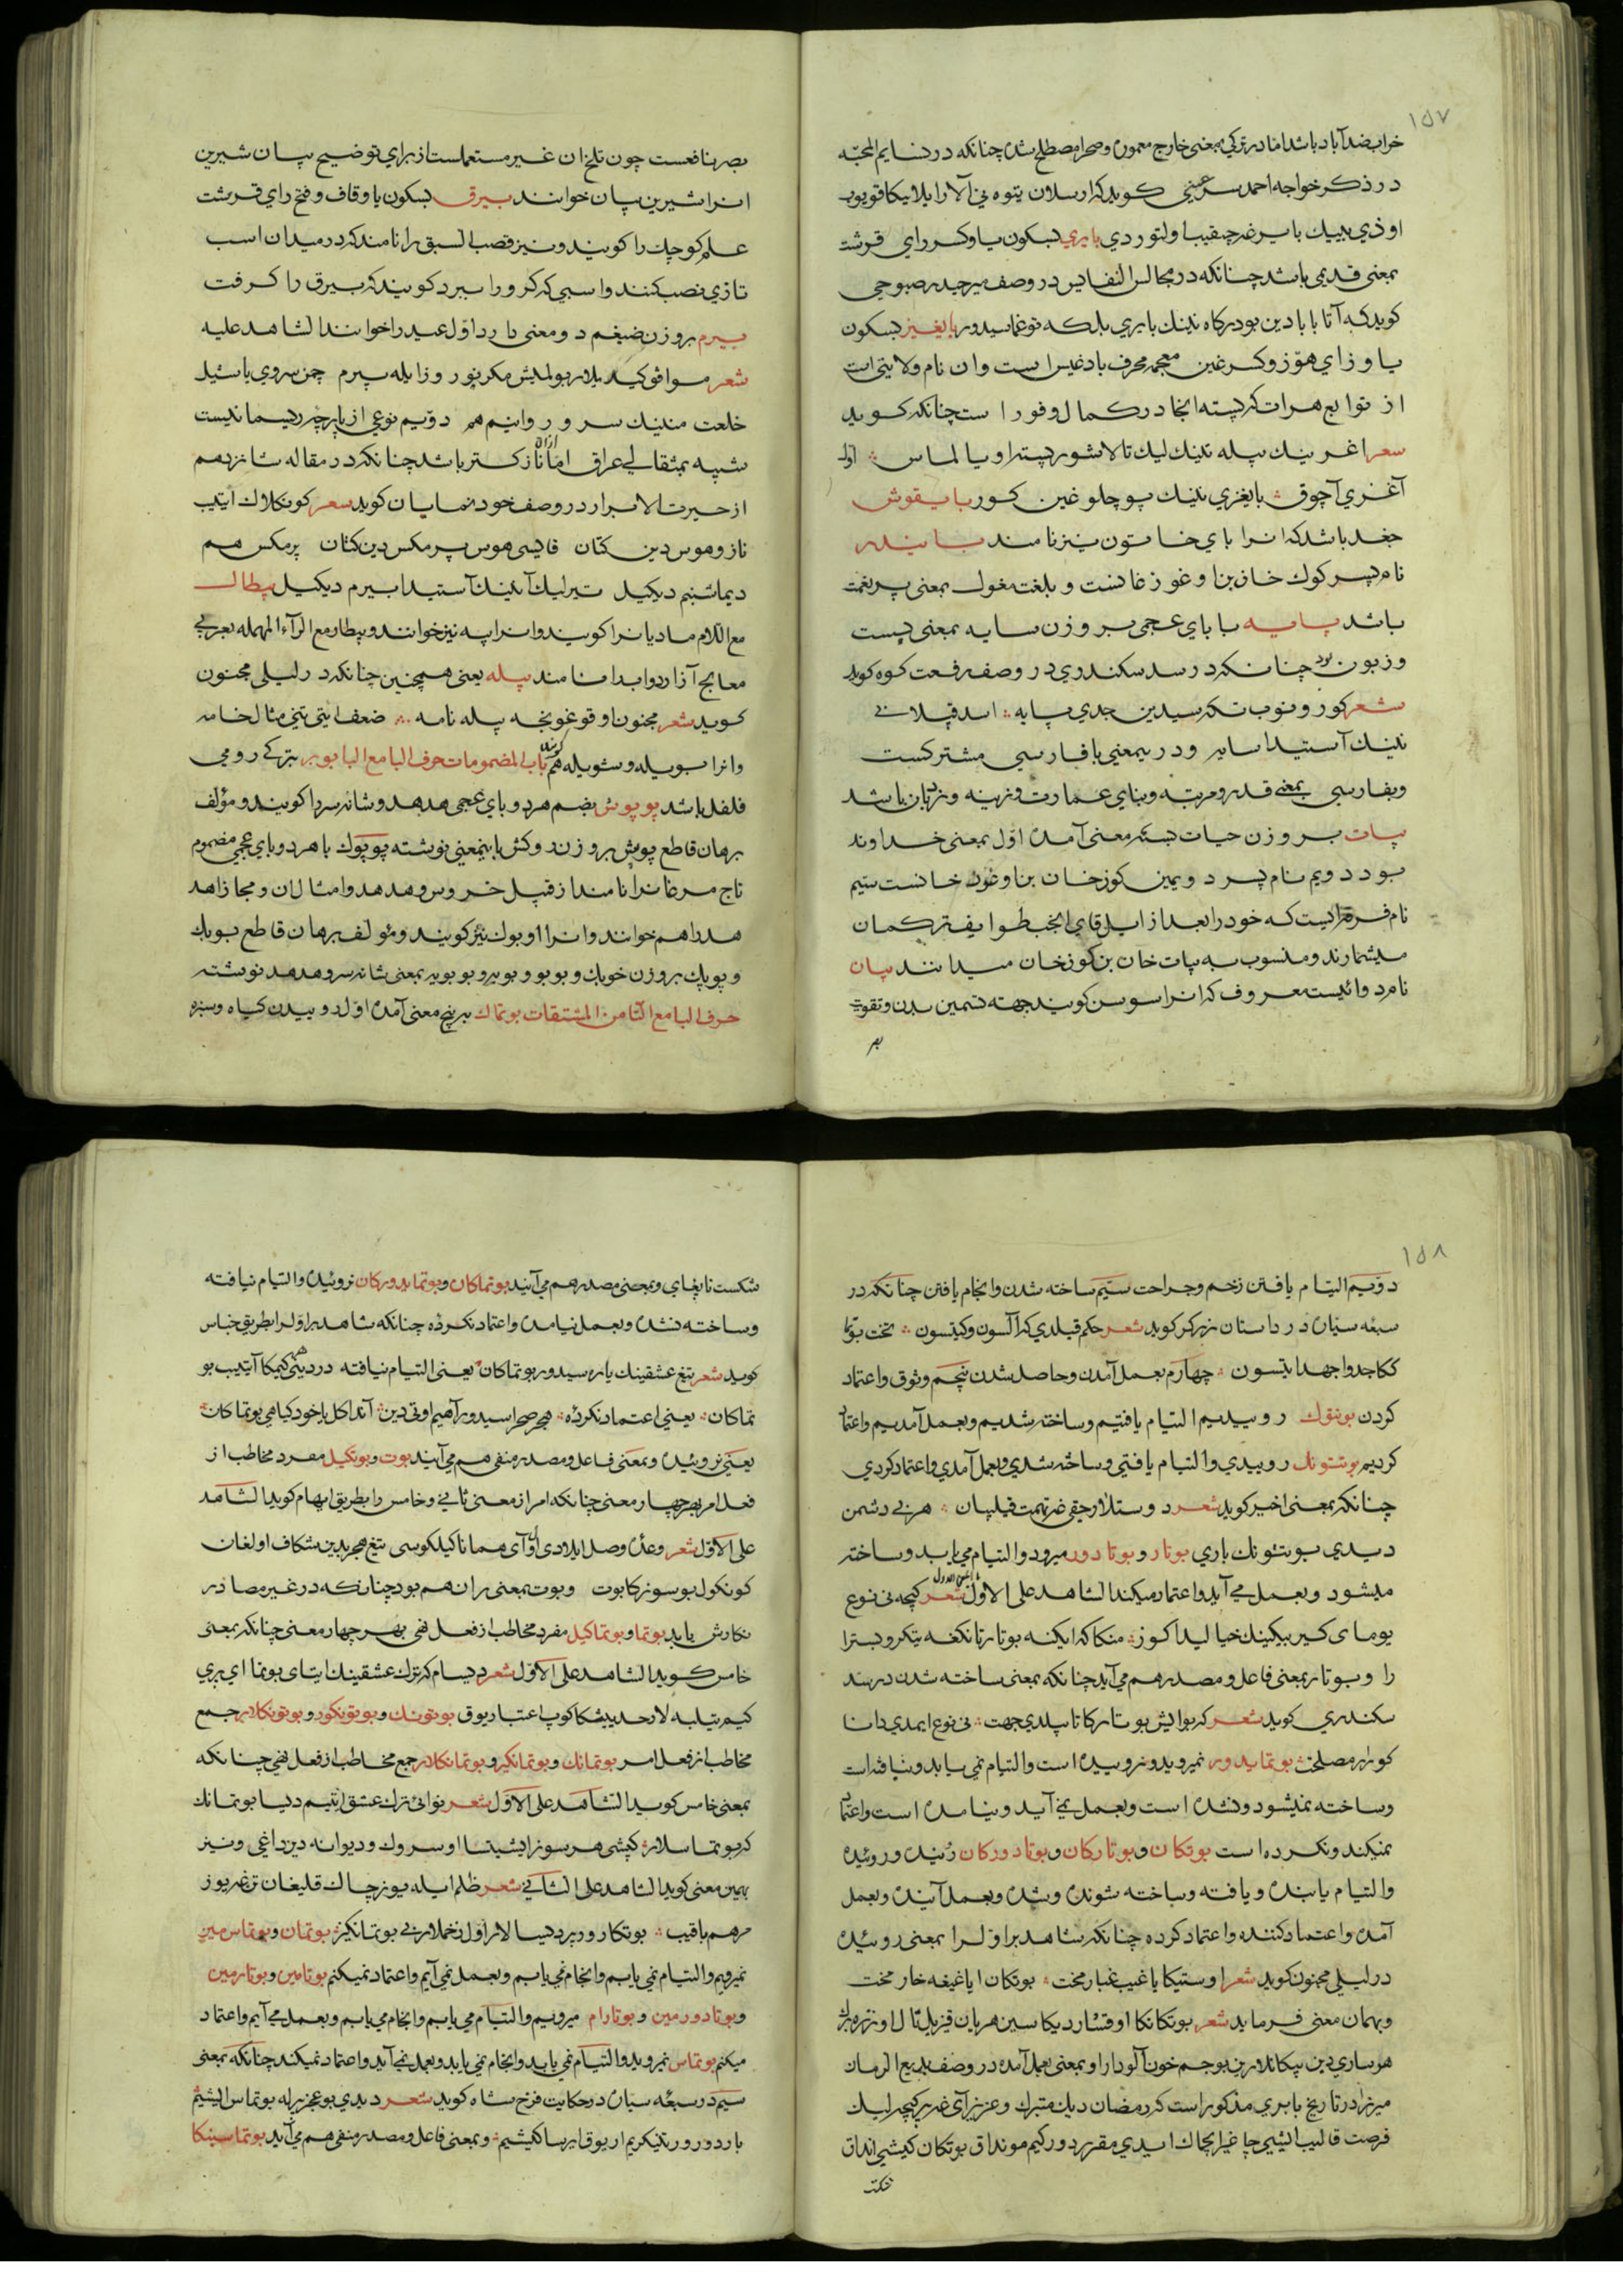 ١٥٧
خراب ضد آباد باشد اما در ترکی بمعنی خارج معموره و صحرا مصطلح شده چنانکه در نسایم المحبه
در ذکر خواجه احمد سرعینی کوید که ارسلان یتوه نی آلارا یلانیکا قویوب
اوذی بییک بایرغه چیقیب اولتوردی بایری بسکون یا و کسر رای قرشت
بمعنی قدیمی باشد چنانکه در مجالس النفایس در وصف میر حیدر صبوحی
کوید که آتا بابادین بو درکاه نینک بایری بلکه توغماسیدور بایغیز بسکون
یا و زای هوز و کسر غین معجمه محرف بادغیس است و ان نام ولایتی است
از توابع هرات که پسته انجا در کمال وفور است چنانکه کوید
شعر اغرینک پله نینک لیک تالاشور پسته او یالماس اول
آغزی آچوق بایغزی نینک پوچلوغین کور بایقوش
جغد باشد که انرا بای خاتون نیز نامند بایندر
نام پسر کوک خان بن اوغوز خانست و بلغت مغول بمعنی پر نعمت
باشد پایه با بای عجمی بر وزن سایه بمعنی پست
و زبون بود چنانکه در سد سکندری در وصف رفعت کوه کوید
شعر کورونوب تکرسیدین جدی پایه اسد قپلانی
نینک آستیدا سایه و در ینمعنی با فارسی مشترکست
و بفارسی بمعنی قدر و مرتبه و بنای عمارت و زینه و نردبان باشد
بیات بر وزن حیات بسه معنی آمده اول بمعنی خداوند
بود دویم نام پسر دویمین کوزخان بن اوغوز خانست سیم
نام فرقه ایست که خود را بعد از ایل قای انجب طوایف ترکمان
میشمارند و منسوب به بیات خان بن کوزخان میدانند بیان
نام دوائیست معروف که انرا سوس کویند جهته تسمین بدن و تقویت
بصر
بصر نافعست چون تلخ ان غیر مستعملست از برای توضیح بیان شیرین
انرا شیرین بیان خوانند بیرق بسکون یا و قاف و فتح رای قرشت
علم کوچک را کویند و نیز قصب السبق را نامند که در میدان اسب
تازی نصب کنند و اسبی که کرو را ببرد کویند که بیرق را کرفت
بیرم بر وزن ضیغم دو معنی دارد اول عید را خوانند الشاهد علیه
شعر موافق کیلدیلار بولمیش مکر نوروز ایله بیرم چمن سروی یاشیل
خلعت مننیک سرو روانیم هم دویم نوعی از پارچه ریسمانیست
شبیه بمثقالی عراق اما نازکتر از ان باشد چنانکه در مقاله شانزدهم
از حیرت الابرار در وصف خودنمایان کوید شعر کونکلاک ایتیب
ناز و هوس دین کتان قایسی هوس پر مکس دین کتان پر مکس هم
دیماشنم دیکیل تیرلیک آنینک آستیدا بیرم دیکیل بیطال
مع اللام مادیانرا کویند و انرا پیه نیز خوانند و بیطار مع الراء المهمله بعربی
معالج آزار دواب را نامند پیله یعنی همچنین چنانکه در لیلی مجنون
کوید شعر مجنون اوقوغونجه پیله نامه ضعف ایتی تنی مثال خامه
و انرا بویله و شویله هم کویند باب المضمومات حرف البا مع البا بوبر بترکی رومی
فلفل باشد پوپوش بضم هر دو بای عجمی هدهد و شانه سر را کویند و مؤلف
برهان قاطع پوپش بر وزن دوکش باینمعنی نوشته پوپوک با هر دو بای عجمی مضموم
تاج مرغانرا نامند از قبیل خروس و هدهد و امثال ان و مجازا هد
هد را هم خوانند و انرا اوبوک نیز کویند و مؤلف برهان قاطع بوبک
و پوپک بر وزن خوبک و بوبو و بوبه و بوبویه بمعنی شانه سر و هدهد نوشته
حرف البا مع التا من المشتقات بوتماک به پنج معنی آمده اول روییدن کیاه و سبزه
١٥٨
دویم التیام یافتن زخم و جراحت سیم ساخته شدن و انجام یافتن چنانکه در
سبعه سیاره در داستان زرکر کوید شعر حکم قیلدی که آلسون و کیتسون تخت بوتما
ککا جد و اجهد ایتسون چهارم بعمل آمدن و حاصل شدن پنجم وثوق و اعتماد
کردن بوتتوک روییدیم التیام یافتیم و ساخته شدیم و بعمل آمدیم و اعتماد
کردیم بوتتونک روییدی و التیام یافتی و ساخته شدی و بعمل آمدی و اعتماد کردی
چنانکه بمعنی اخیر کوید شعر دوستلار حقی غه تهمت قیلیبان هر نی دشمن
دیدی بوتتونک باری بوتار و بوتادور میروید و التیام می یابد و ساخته
میشود و بعمل می آید و اعتماد میکند الشاهد علی الاول شعر کیچه نی نوع
یومای کیر بیکینک خیالیدا کوز منکا که ایکنه بوتار تانکغه تیکرو بسترا
را و بوتار بمعنی فاعل و مصدر هم می آید چنانکه بمعنی ساخته شدن در سد
سکندری کوید شعر که بو ایش بوتارکا تاپیلدی جهت نی نوع ایمدی دانا
کورار مصلحت بوتمایدور نمیروید و نروییده است و التیام نمی یابد و نیافته است
و ساخته نمیشود و نشده است و بعمل نمی آید و نیامده است و اعتماد
نمیکند و نکرده است بوتکان و بوتارکان و بوتادورکان روینده و روئیده
و التیام یابنده و یافته و ساخته شونده و شده و بعمل آینده و بعمل
آمده و اعتماد کننده و اعتماد کرده چنانکه شاهد بر اول را بمعنی روئیده
در لیلی مجنون کوید شعر اوستیکا یاغیب غبار محنت بوتکان ایاغیغه خار محنت
و بهمان معنی فرماید شعر بوتکانکا اوقشار دیکا سین هر یان قیزیل تال اوزره برک
هر ساری دین پیکانلارین بو جسم خون آلودارا و بمعنی بعمل آمده در وصف بدیع الزمان
میرزا در تاریخ بابری مذکور است که رمضان دیک متبرک و عزیز آی غه بر کیچه لیک
فرصت قالیب ایچیی چاغیر ایچماک ایدی مقرردور کیم مونداق بوتکان کیشی انداق
شکست
شکست تاپغای و بمعنی مصدر هم می آیند بوتماکان و بوتمایدورکان نروئیده و التیام نیافته
و ساخته نشده و بعمل نیامده و اعتماد نکرده چنانکه شاهد بر اول را بطریق جناس
کوید شعر تیغ عشقینک یاره سیدور بوتماکان یعنی التیام نیافته دردینی کیمکا آیتیب بو
تماکان یعنی اعتماد نکرده هجر صحراسیدور آهیم اوتی دین آندا کل یا خود کیاهی بوتماکان
یعنی نروئیده و بمعنی فاعل و مصدر منفی هم می آیند بوت و بوتکیل مفرد مخاطب از
فعل امر بهر چهار معنی چنانکه امر از معنی ثانی و خامس را بطریق ابهام کوید الشاهد
علی الاول شعر وعده وصل ایلادی اول آی هماناکیلکوسی تیغ هجریدین شکاف اولغان
کونکول بو سوزکا بوت و بوت بمعنی ران هم بود چنانکه در غیر مصادر
نکارش یابد بوتما و بوتماکیل مفرد مخاطب از فعل نهی بهر چهار معنی چنانکه بمعنی
خامس کوید الشاهد علی الاول شعر دیسام که ترک عشقینک ایتای بوتما ای پری
کیم تیلبه لار حدیثیکا کوپ اعتبار یوق بوتونک و بوتونکوز و بوتونکلار جمع
مخاطب از فعل امر بوتمانک و بوتمانکیز و بوتمانکلار جمع مخاطب از فعل نهی چنانکه
بمعنی خامس کوید الشاهد علی الاول شعر نوائی ترک عشق ایتیم دیسا بوتمانک
کر بوتماسلار کیشی هر سوز ایشیتسا اوسروک و دیوانه دین داغی و نیز
بهمین معنی کوید الشاهد علی الثانی شعر ظلم ایله یوز چاک قلیغان تن غه یوز
مرهم یاقیب بوتکاروربیز دیسالار اول زخملارنی بوتمانکیز بوتمان و بوتماس مین
نمیرویم و التیام نمی یابم و انجام نمی یابم و بعمل نمی آیم و اعتماد نمیکنم بوتامین و بوتارمین
و بوتادورمین و بوتارام میرویم و التیام می یابم و انجام می یابم و بعمل می آیم و اعتماد
میکنم بوتماس نمیروید و التیام نمی یابد و انجام نمی یابد و بعمل نمی آید و اعتماد نمیکند چنانکه بمعنی
سیم در سبعه سیاره در حکایت فرخ شاه کوید شعر دیدی بو عجز بیرله بوتماس ایشیم
باردورور تینکریم ار یوق ایرسا کیشیم و بمعنی فاعل و مصدر منفی هم می آید بوتماسینکا